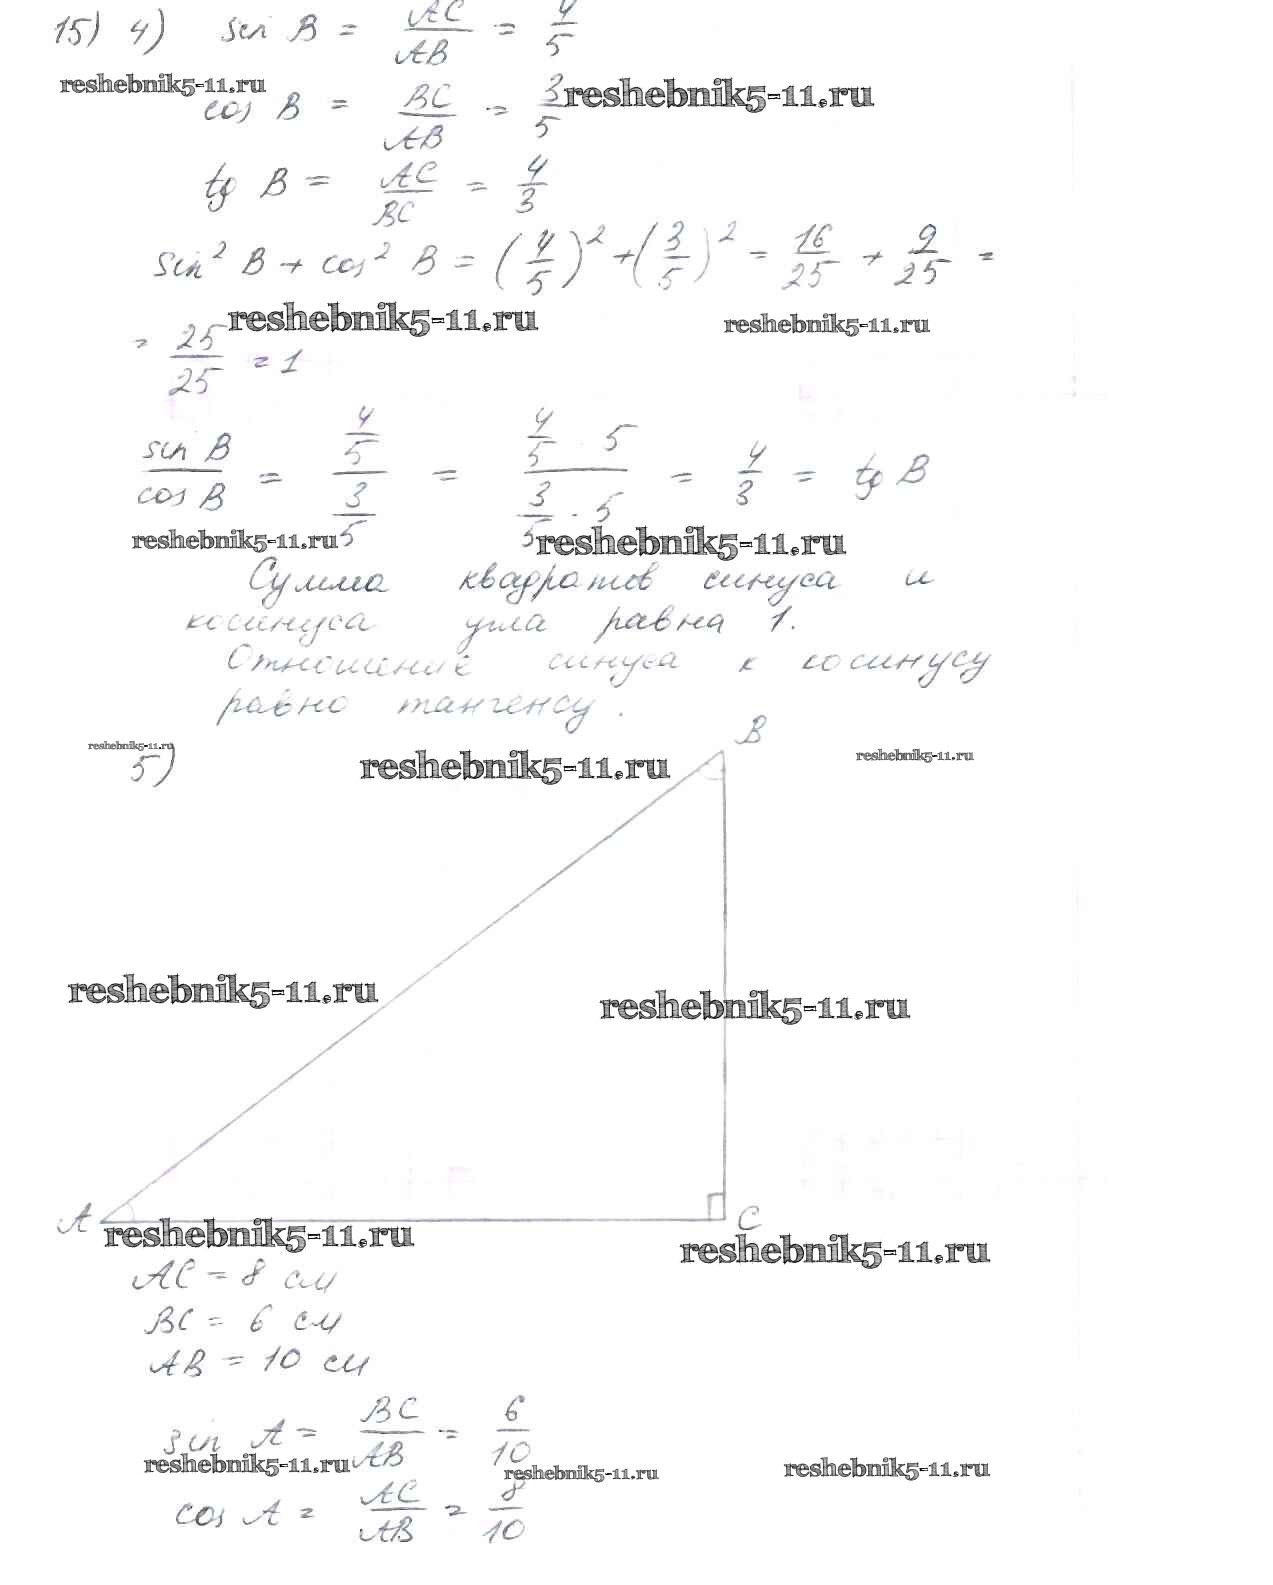 15) 4) sin B = AC/AB = 4/5
reshebnik5-11.ru
cos B = BC/AB = 3/5 reshebnik5-11.ru
tg B = AC/BC = 4/3
sin² B + cos² B = (4/5)² + (3/5)² = 16/25 + 9/25 =
reshebnik5-11.ru reshebnik5-11.ru
= 25/25 = 1
sin B/cos B = 4/5 / 3/5 = 4/5 · 5 / 3/5 · 5 = 4/3 = tg B
reshebnik5-11.ru reshebnik5-11.ru
Сумма квадратов синуса и
косинуса угла равна 1.
Отношение синуса к косинусу
равно тангенсу.
B
reshebnik5-11.ru
5) reshebnik5-11.ru reshebnik5-11.ru
reshebnik5-11.ru reshebnik5-11.ru
A C
reshebnik5-11.ru reshebnik5-11.ru
AC = 8 см
BC = 6 см
AB = 10 см
sin A = BC/AB = 6/10
reshebnik5-11.ru reshebnik5-11.ru reshebnik5-11.ru
cos A = AC/AB = 8/10